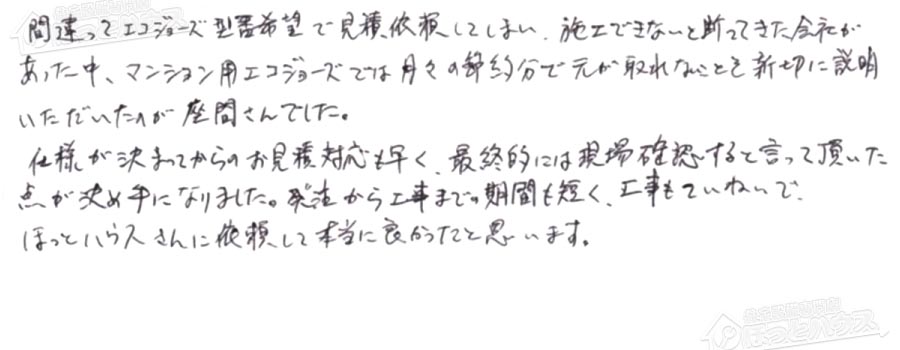 間違ってエコジョーズ型番希望で見積依頼してしまい、施工できないと断ってきた会社が
あった中、マンション用エコジョーズでは月々の節約分で元が取れないことを新切に説明
いただいたのが座間さんでした。
仕様が決まってからのお見積対応も早く、最終的には現場確認すると言って頂いた
点が決め手になりました。発注から工事までの期間も短く、工事もていねいで、
ほっとハウスさんに依頼して本当に良かったと思います。
ほっとハウス
ほっとハウス